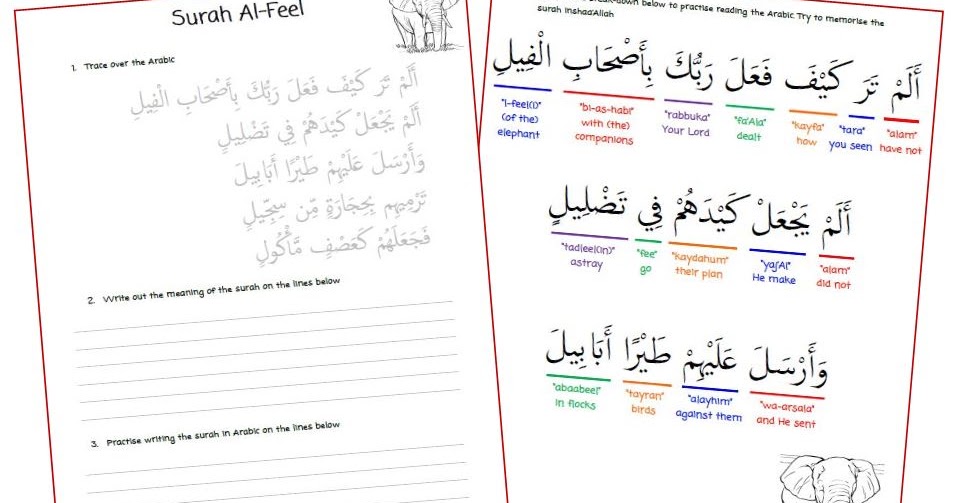 Surah Al-Feel
1. Trace over the Arabic
أَلَمْ تَرَ كَيْفَ فَعَلَ رَبُّكَ بِأَصْحَابِ الْفِيلِ
أَلَمْ يَجْعَلْ كَيْدَهُمْ فِي تَضْلِيلٍ
وَأَرْسَلَ عَلَيْهِمْ طَيْرًا أَبَابِيلَ
تَرْمِيهِم بِحِجَارَةٍ مِّن سِجِّيلٍ
فَجَعَلَهُمْ كَعَصْفٍ مَّأْكُولٍ
2. Write out the meaning of the surah on the lines below
3. Practise writing the surah in Arabic on the lines below
below to practise reading the Arabic. Try to memorise the
surah inshaa'Allah
أَلَمْ تَرَ كَيْفَ فَعَلَ رَبُّكَ بِأَصْحَابِ الْفِيلِ
"l-feel(i)" "bi-as-habi" "rabbuka" "fa'Ala" "kayfa" "tara" "alam"
(of the) with (the) Your Lord dealt how you seen have not
elephant companions
أَلَمْ يَجْعَلْ كَيْدَهُمْ فِي تَضْلِيلٍ
"tadleel(in)" "fee" "kaydahum" "yaj'Al" "alam"
astray go their plan He make did not
وَأَرْسَلَ عَلَيْهِمْ طَيْرًا أَبَابِيلَ
"abaabeel" "tayran" "alayhim" "wa-arsala"
in flocks birds against them and He sent